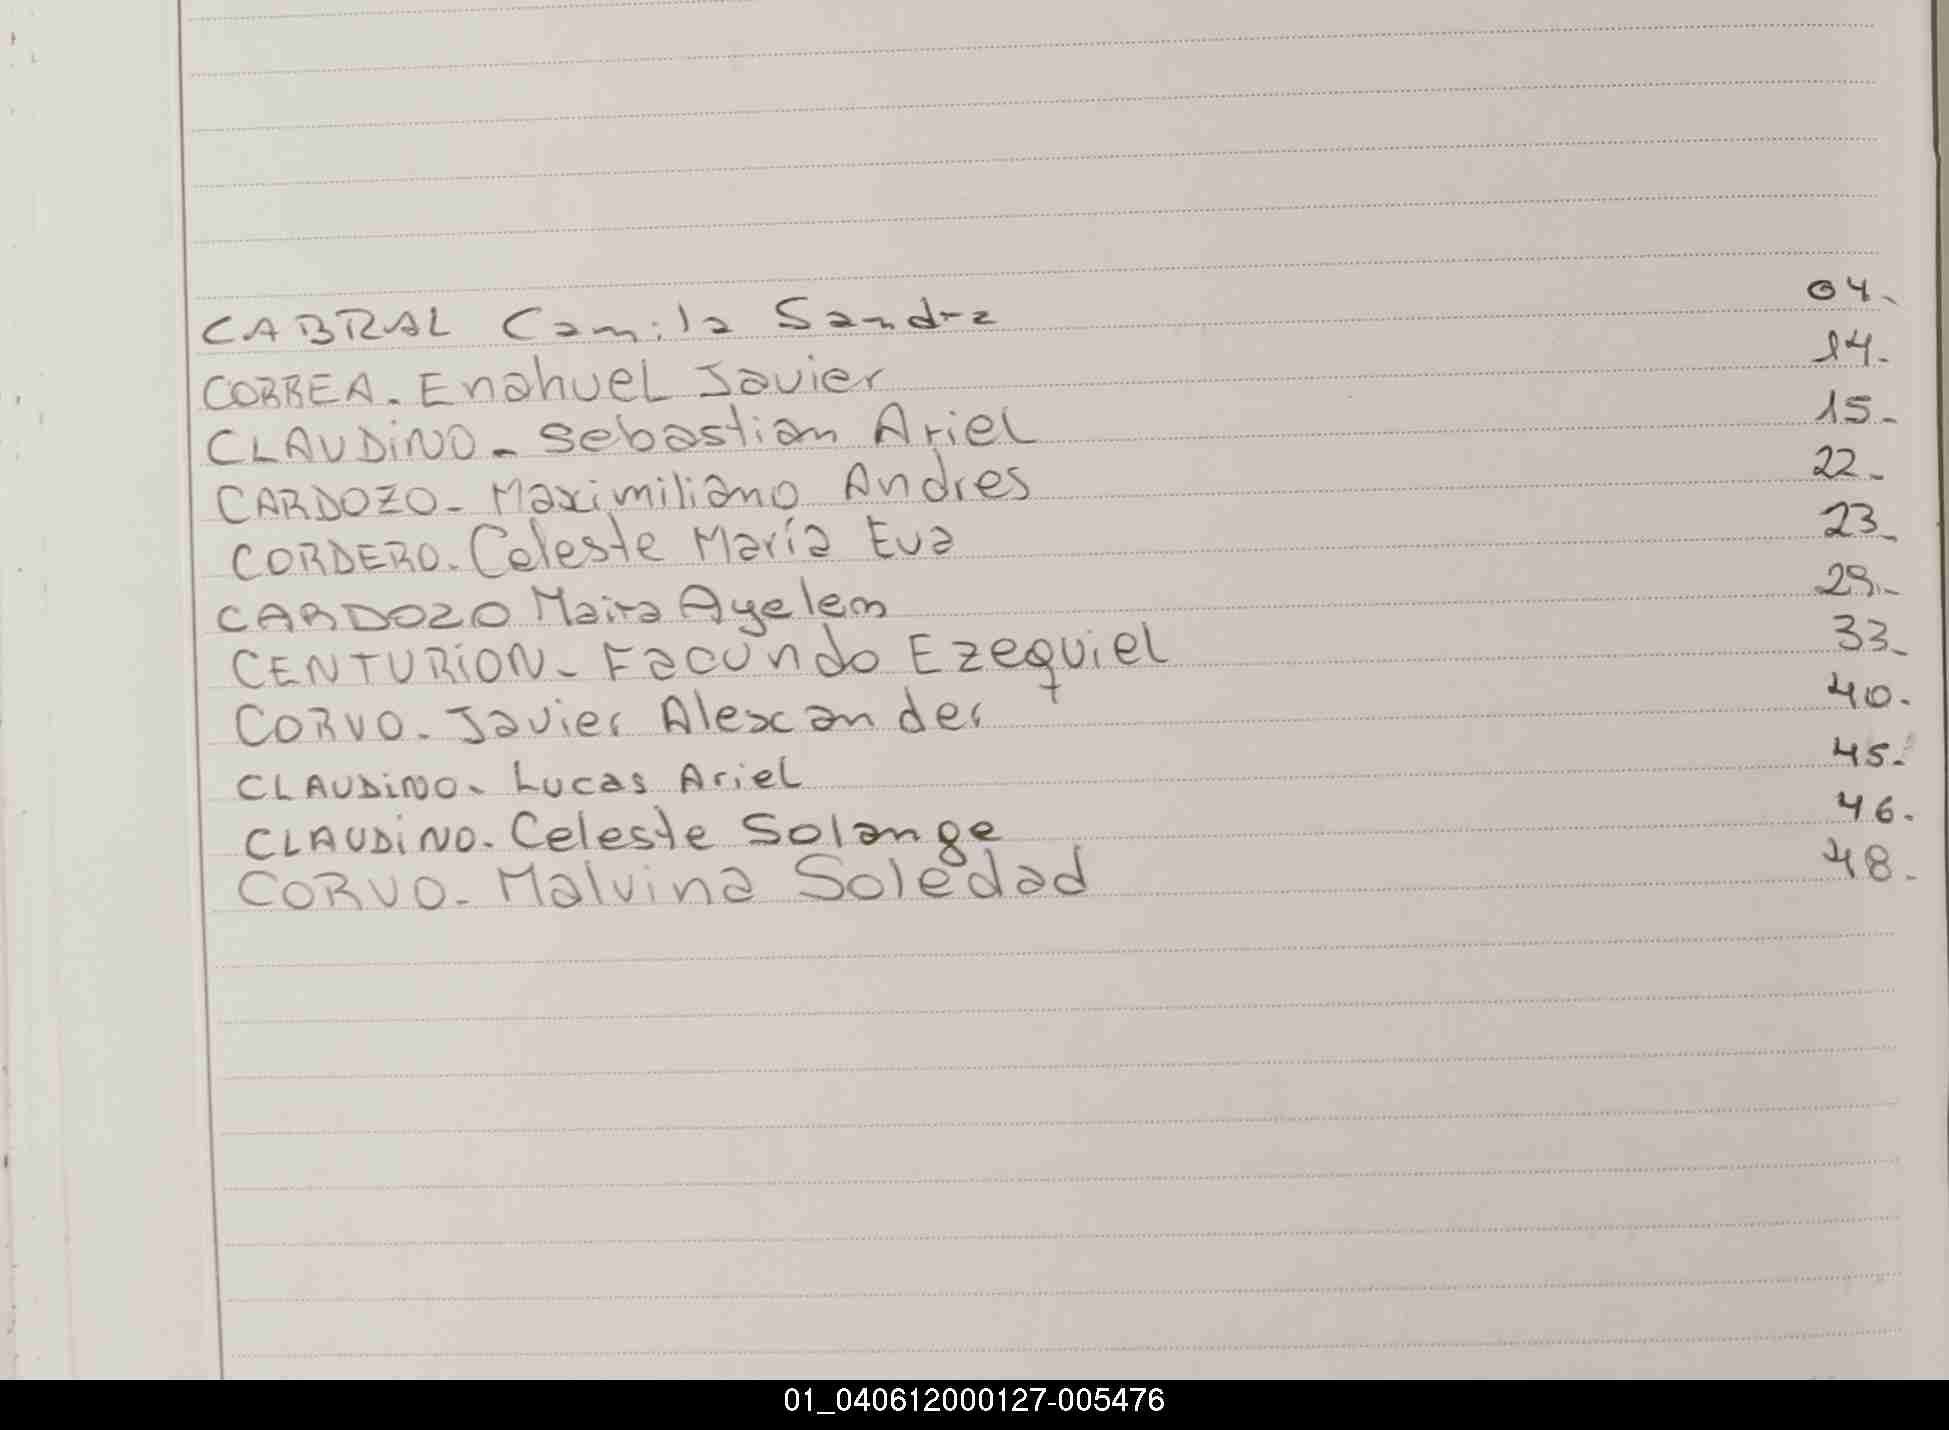 CABRAL Camila Sandra 04-
CORREA. Enahuel Javier 14-
CLAUDiNO- Sebastian Ariel 15-
CARDOZO- Maximiliano Andres 22-
CORDERO. Celeste María Eva 23-
CARDOZO Maira Ayelem 29-
CENTURiON- Facundo Ezequiel 33-
CORVO. Javier Alexander 40.
CLAUDiNO- Lucas Ariel 45.
CLAUDiNO. Celeste Solange 46.
CORVO- Malvina Soledad 48.
01_040612000127-005476